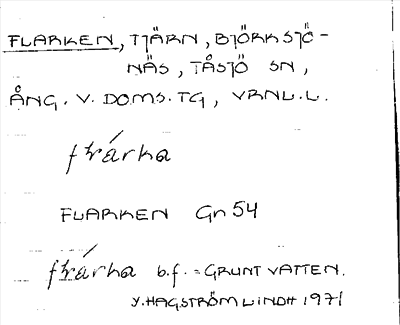 FLARKEN, TJÄRN, BJÖRKSJÖ-
NÄS, TÅSJÖ SN,
ÅNG. V. DOMS. TG, VRNL. L.
frárka
FLARKEN Gn 54
frárka b.f. = GRUNT VATTEN.
Y. HAGSTRÖM LINDH 1971